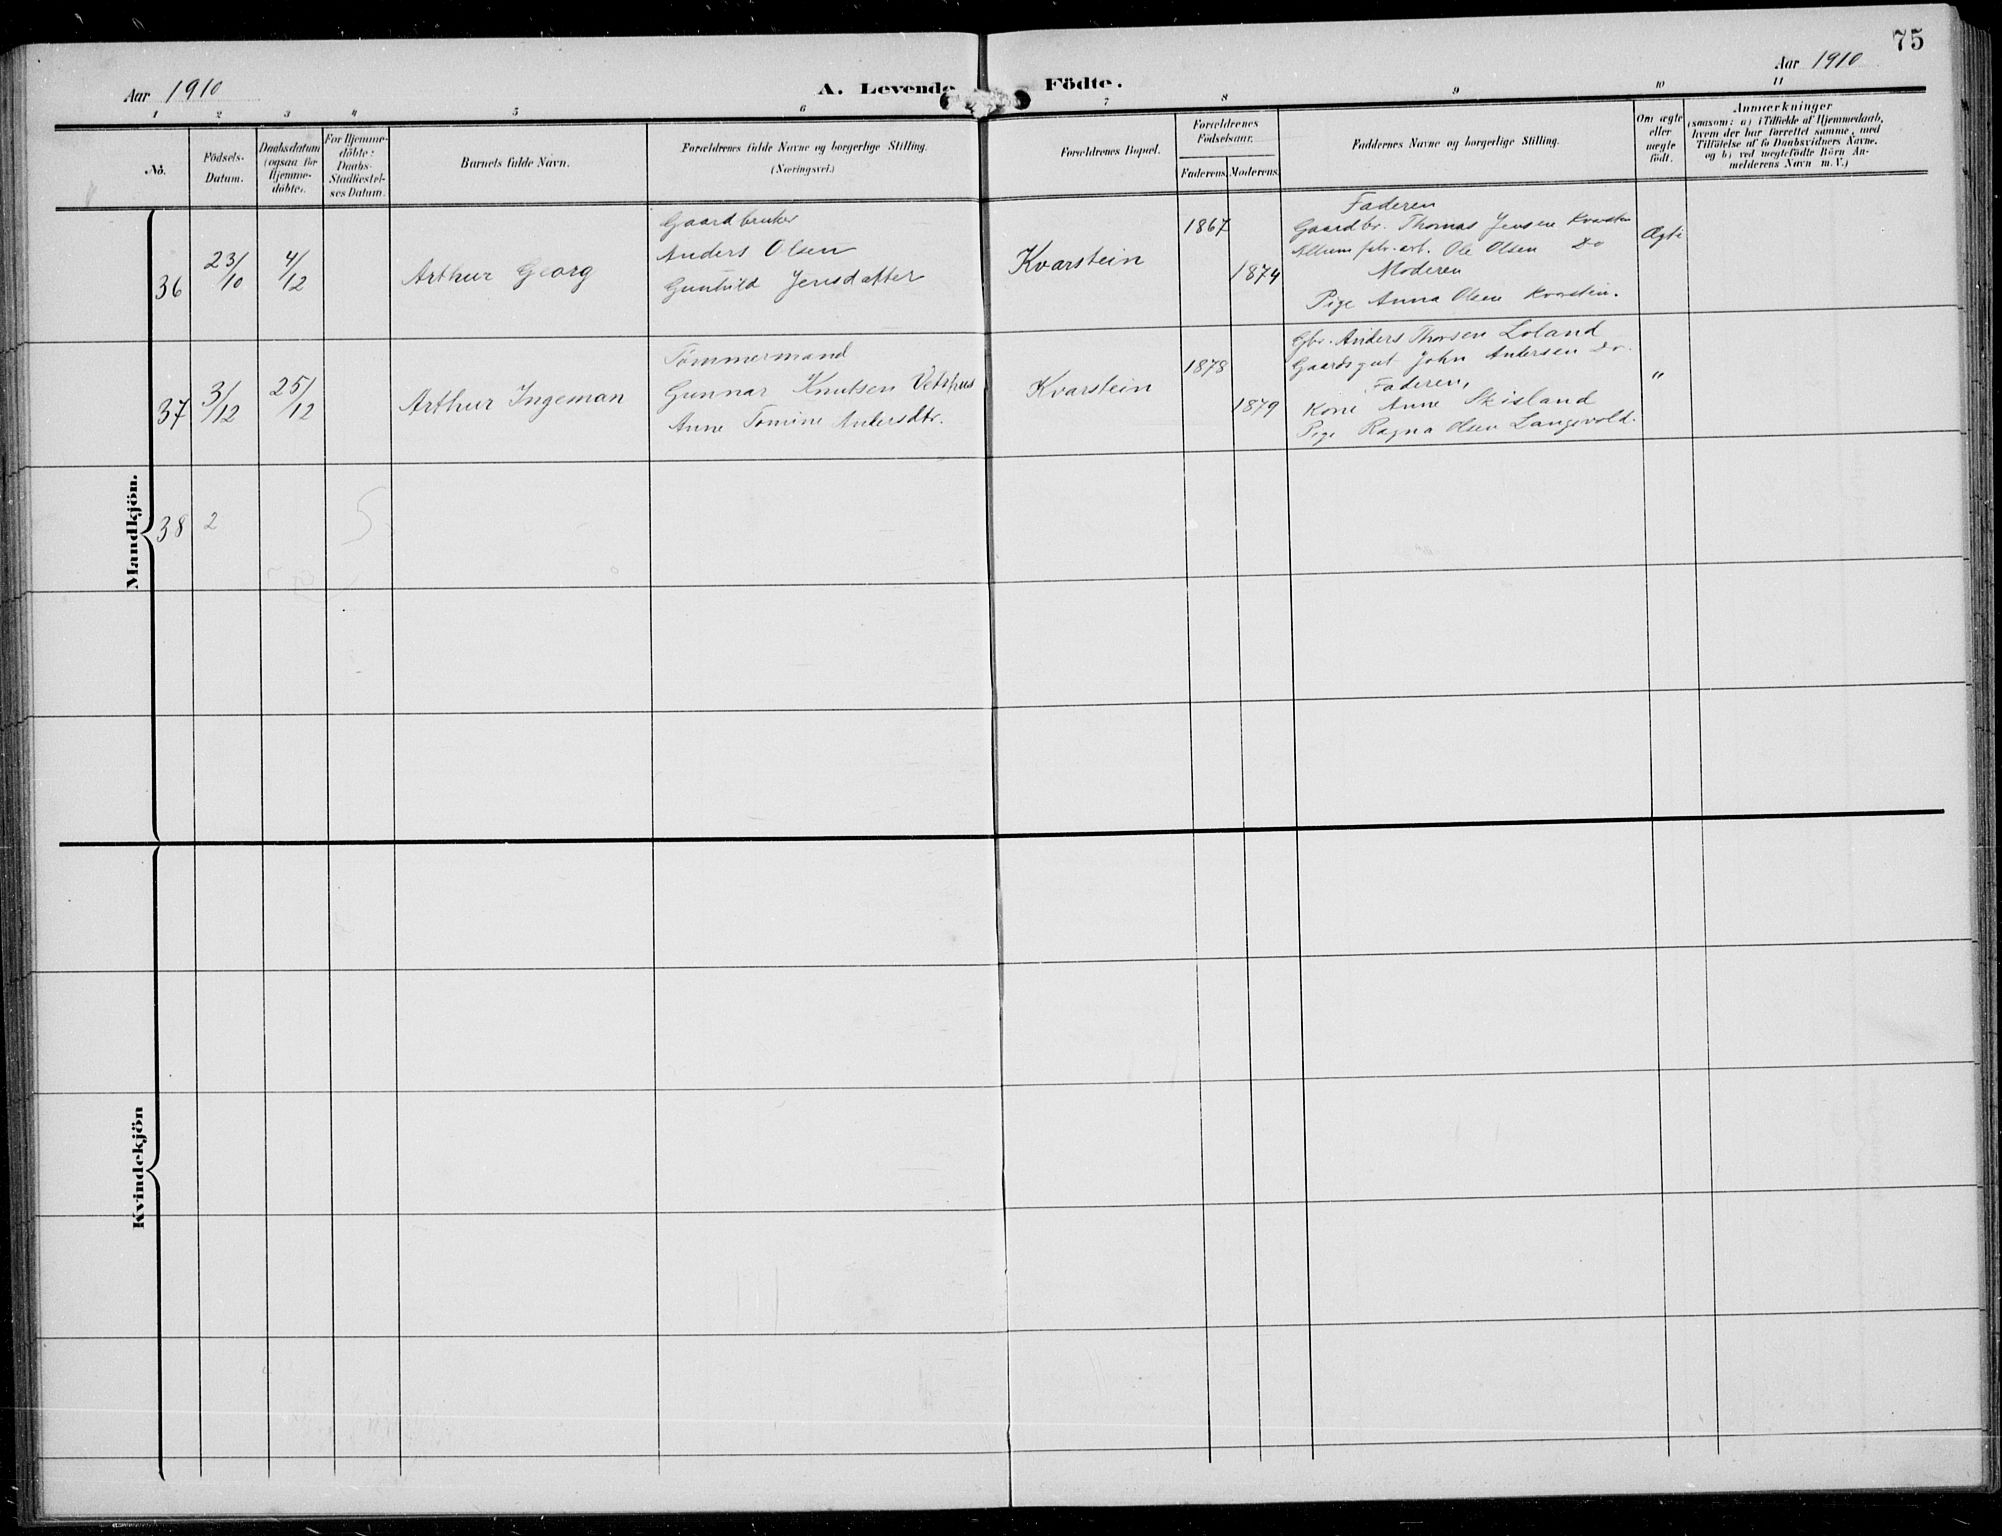 75
Aar 1910
A. Levende Födte.
Aar 1910
1 2 3 4 5 6 7 8 9 10 11
No.
Födsels-
Datum.
Daabsdatum
(ogsaa for
Hjemme-
döbte).
For Hjemme-
döbte:
Daabs-
Stadfæstel-
ses Datum.
Barnets fulde Navn.
Forældrenes fulde Navne og borgerlige Stilling.
(Næringsvei.)
Forældrenes Bopæl.
Forældrenes
Födselsaar.
Faderens. Moderens.
Faddernes Navne og borgerlige Stilling.
Om ægte
eller
uægte
födt.
Anmærkninger
(saasom: a) i Tilfælde af Hjemmedaab,
hvem der har forrettet samme, med
Tilföielse af to Daabsvidners Navne,
og b) ved uægtefödte Börn An-
melderens Navn m. V.)
Mandkjön.
36
23/10
4/12
Arthur Georg
Gaardbruker
Anders Olsen
Gunhild Jensdatter
Kvarstein
1867
1874
Faderen
Gaardbr. Thomas Jensen Kvarstein
arb. Ole Olsen Do
Moderen
Pige Anna Olsen Kvarstein.
Ægte
37
3/12
25/12
Arthur Ingeman
Tømmermand
Gunnar Knutsen Vetrhus
Anne Tomine Andersdtr.
Kvarstein
1878
1879
Gbr. Anders Thorsen Loland
Gaardsgut John Andersen Do.
Faderen,
Kone Anne Skisland
Pige Ragna Olsen Langevold.
"
38
2
5
Kvindekjön